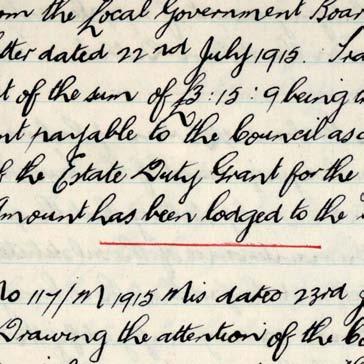 om the Local Government Boar
tter dated 22nd July 1915. Tra
t of the sum of £3:15:9 being
nt payable to the Council as
f the Estate Duty Grant for the
Amount has been lodged to the
No 117/M 1915 Mis dated 23rd
Drawing the attention of the